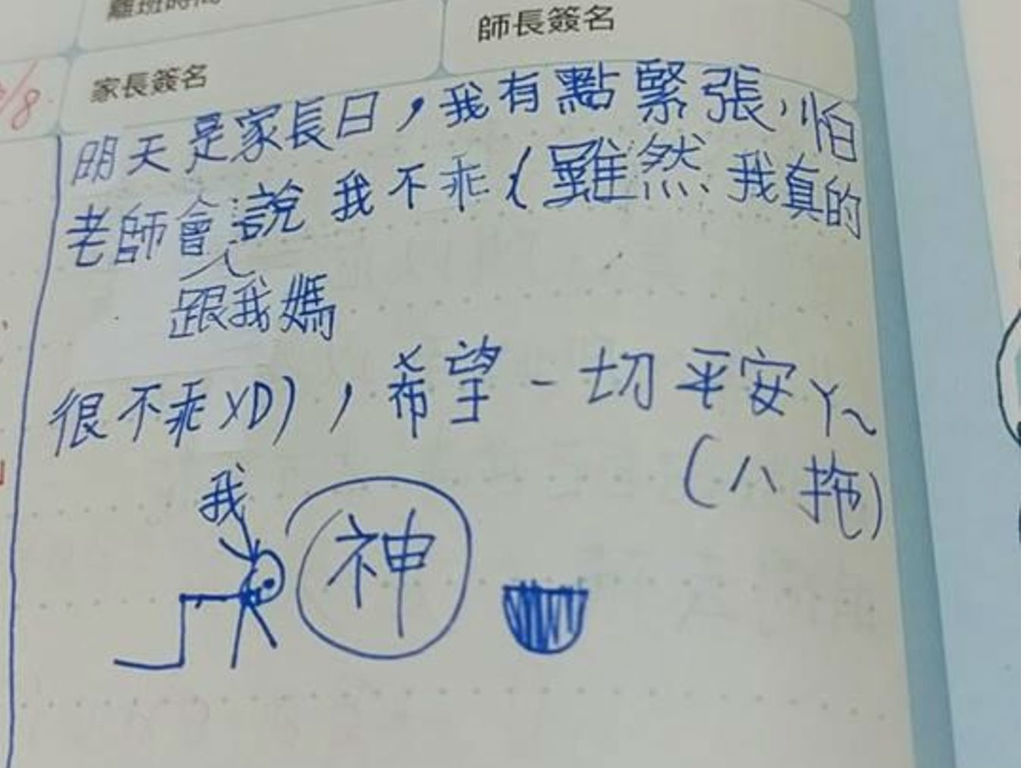 離班時間
師長簽名
家長簽名
/8
明天是家長日，我有點緊張，怕
老師會說我不乖（雖然我真的
跟我媽
很不乖XD），希望一切平安ㄚ~
（ㄅ拖）
我
神